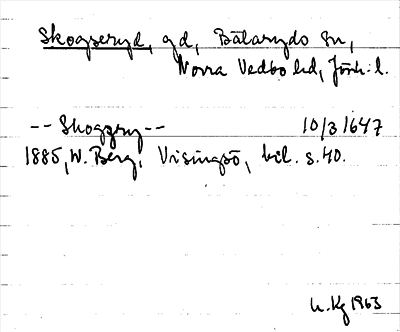 Skogseryd, gd, Bälaryds sn,
Norra Vedbo hd, Jönk. l.
-- Skogzry -- 10/3 1647
1885, W. Berg, Visingsö, bil. s. 40.
Kg 1963